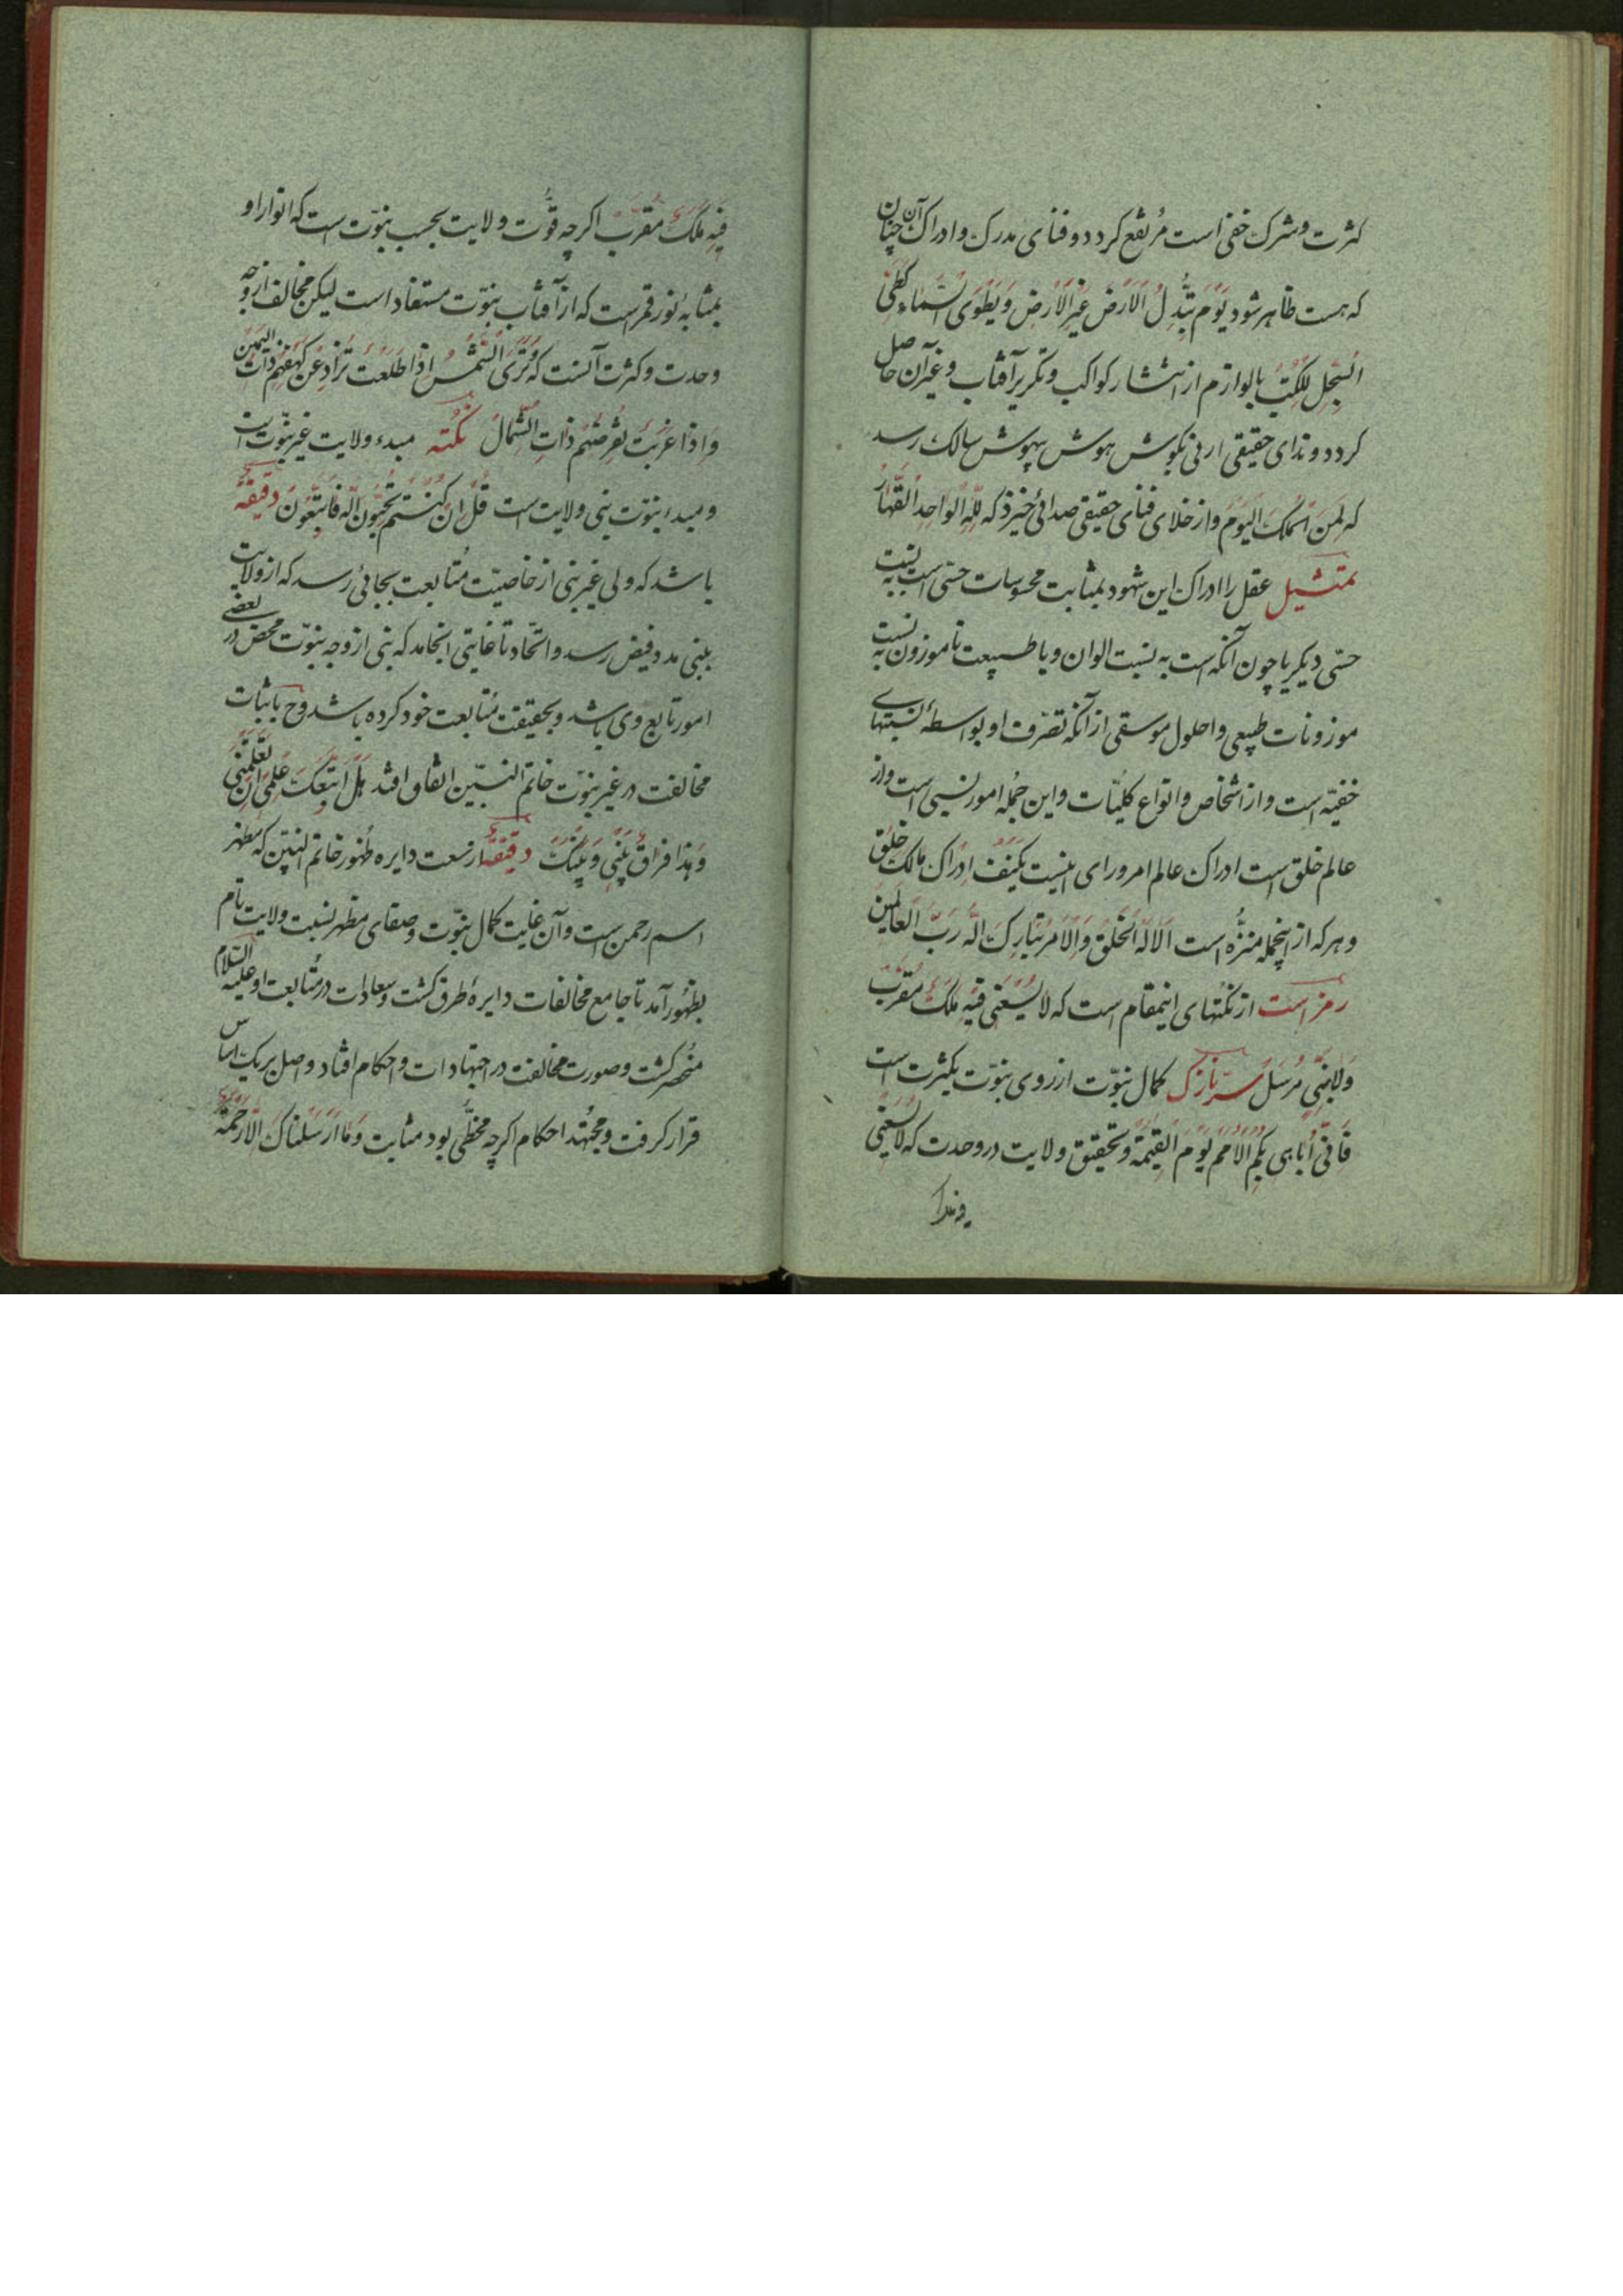 کثرت و شرک خفی است مُرتفع کردد و فنای مدرک و ادراک آن چنان
که هست ظاهر شود یَوْمَ تُبَّدلُ الاَرضَ غَیرَ الاَرضِ وَیَطْوَی السَّمَاءِ کَطَیِّ
السِّجِلِ لِلکُتُبْ بالوازم از انتشار کواکب و تکریر آفتاب و غیر آن حاصل
کردد و ندای حقیقی ارنی بکوش هوش بیهوش سالک رسد
که لِمَنِ الْمُلکُ الیَوْمَ و از خلای فنای حقیقی صدائی خیزد که لِلّهِ الوَاحِدِ القَهَّارُ
تمثیل عقل را ادراک این شهود بمثابت محسوسات حسّی است به نسبت
حسّی دیکر یا چون آنکه است به نسبت الوان و یا طبیعت ناموزون به نسبت
موزونات طبیعی و احلول موسقی از آنکه تصرّف او بواسطهٔ نسبتهای
خفیّه است و از اشخاص و انواع کلیّات و این جُمله امور نسبی است و از
عالم خلق است ادراک عالم امر ورای اینیست یکَیفَ اِدرَاکَ مالک خَلق
و هرکه از اینجمله منزّه است اَلاَ لَهُ الخَلقُ وَالاَمرُ تَبَارَکَ الله رَبُّ العَالَمینَ
رمز است از نکتهای اینمقام است که لاَ یَسَعُنِی فِیهِ مَلَکٌ مُقَرَّبٌ
وَلاَ نَبِیٌ مُرسَلٌ سرّ نازک کمال نبوّت از روی نبوّت بکثرت است
فَاَنِّی اُبَاهِی بِکُمُ الاُمَمَ یَوْمَ القِیمَة و تحقیق ولایت در وحدت که لاَ یَسَعُنِی
فیه ملک
فِیهِ مَلَکٌ مُقَرَّبٌ اکرچه قوّت ولایت بحسب نبوّت است که انوار او
بمثابه نور قمر است که از آفتاب نبوّت مستفاد است لیکن مخالف از وجه
وحدت و کثرت آنست که وَتَرَی الشَّمْسَ اِذَا طَلَعَتْ تَزَاوَرُ عَنْ کَهْفِهِمْ ذَاتَ الیَمِینِ
وَ اِذَا غَرَبَتْ تَقْرِضُهُم ذَاتَ الشِّمَالُ نکته مبدء ولایت غیر نبوّت است
و مبدء نبوّت نبی ولایت است قُلْ اِنْ کُنْتُمْ تُحِبُّونَ الله فَاتَّبِعُونِی دقیقهٔ
باشد که ولی غیر نبی از خاصیّت مُتابعت بجائی رسد که از ولایت
بنبی مدد فیض رسد و اتّحاد تا غایتی انجامد که نبی از وجه نبوّت محض در بعضی
امور تابع وی باشد و بحقیقت مُتابعت خود کرده باشد وح باثبات
مخالفت در غیر نبوّت خاتم النبیّین اتفاق افتد هَلْ اَتَّبِعُکَ عَلَی اَنْ تُعَلِّمَنِی
وَ هذا فراقُ بَیْنِی وَ بَیْنِکَ دقیقهٔ از سعت دایره ظهور خاتم النبیّین که مظهر
اسم رحمن است و آن غایت کمال نبوّت و صفای مظهر نسبت ولایت تام
بظهور آمد تا جامع مخالفات دایرهٔ طرق کشت و سعادات در مُتابعت او علیه السّلام
منحصر کشت و صورت مخالفت در اجتهادات و احکام افتاد و اصل بر یک اساس
قرار کرفت و مجتهد احکام اکرچه مخطّی بود مثابت وَمَا اَرْسَلْنَاکَ اِلاَّ رَحْمَةً